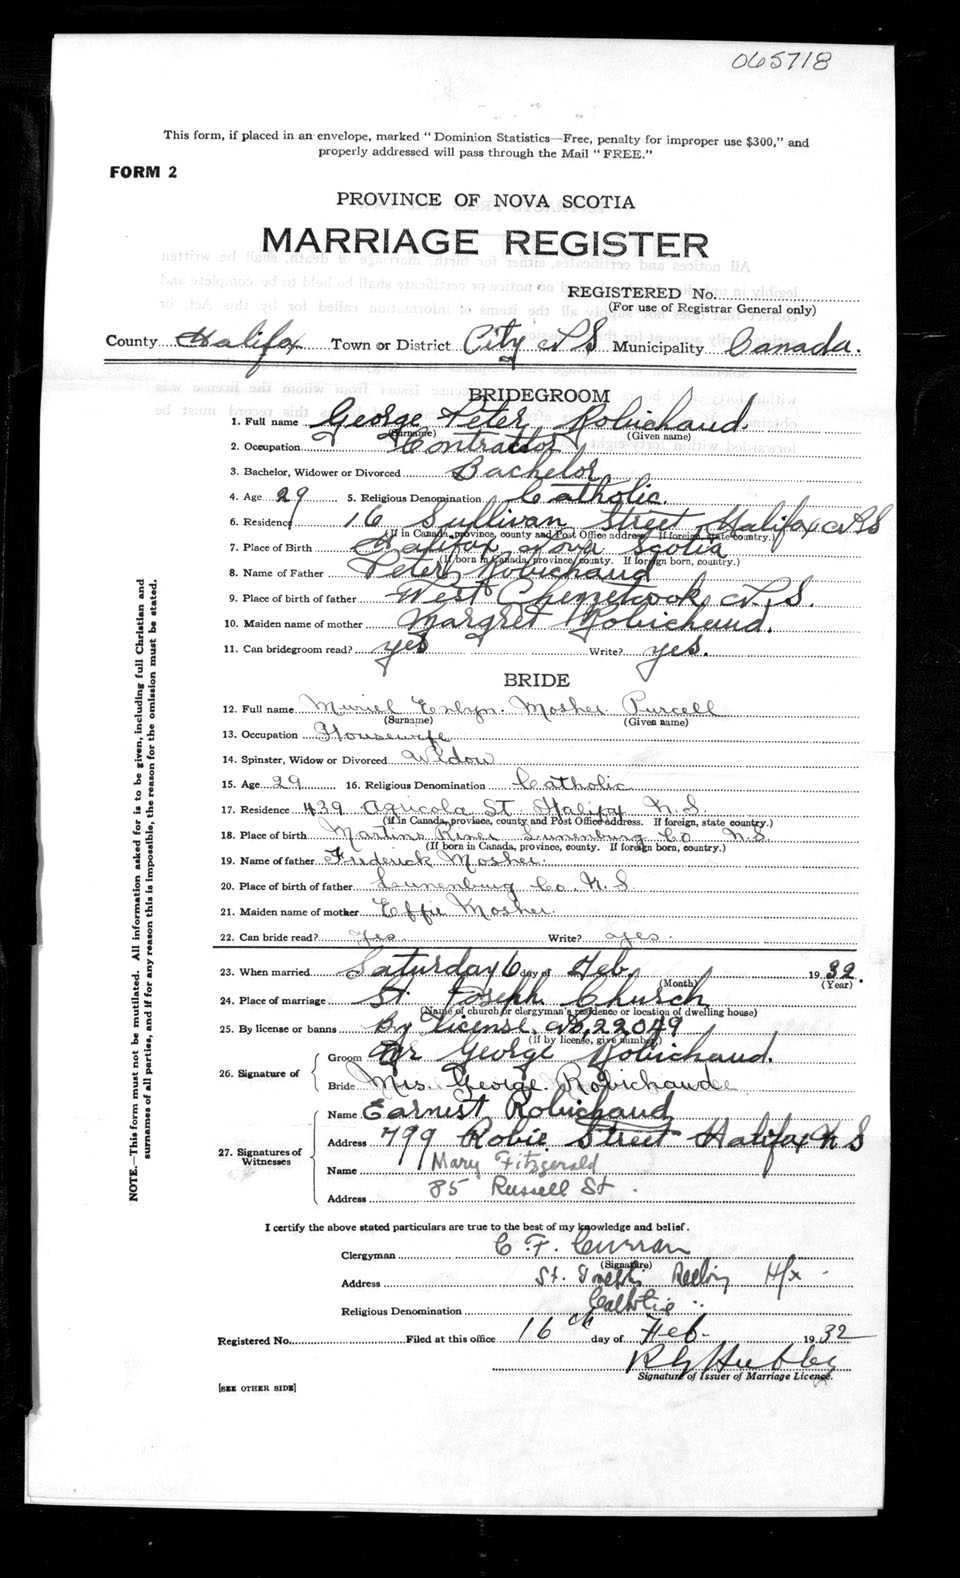 065718
This form, if placed in an envelope, marked "Dominion Statistics—Free, penalty for improper use $300," and
properly addressed will pass through the Mail "FREE."
FORM 2
PROVINCE OF NOVA SCOTIA
MARRIAGE REGISTER
REGISTERED No.
(For use of Registrar General only)
County Halifax Town or District City N S Municipality Canada.
BRIDEGROOM
1. Full name George Peter Robichaud.
(Surname) (Given name)
2. Occupation Contractor
3. Bachelor, Widower or Divorced Bachelor
4. Age 29 5. Religious Denomination Catholic.
6. Residence 16 Sullivan Street Halifax N S
(If in Canada, province, county and Post Office address. If foreign, state country.)
7. Place of Birth Halifax Nova Scotia
(If born in Canada, province, county. If foreign born, country.)
8. Name of Father Peter Robichaud
9. Place of birth of father West Chezzetcook N. S.
10. Maiden name of mother Margret Robichaud.
11. Can bridegroom read? yes Write? yes.
BRIDE
12. Full name Muriel Evlyn. Mosher Purcell
(Surname) (Given name)
13. Occupation Housewife
14. Spinster, Widow or Divorced Widow
15. Age 29 16. Religious Denomination Catholic
17. Residence 439 Agricola St. Halifax N. S.
(If in Canada, province, county and Post Office address. If foreign, state country.)
18. Place of birth Martins River Lunenburg Co N.S.
(If born in Canada, province, county. If foreign born, country.)
19. Name of father Frederick Mosher.
20. Place of birth of father Lunenburg Co. N. S
21. Maiden name of mother Effie Mosher.
22. Can bride read? Yes Write? yes.
23. When married Saturday 6 day of Feb. 1932.
(Month) (Year)
24. Place of marriage St Joseph Church
(Name of church or clergyman's residence or location of dwelling house)
25. By license or banns By License, No, 22049
(If by license, give number.)
26. Signature of
Groom Mr George Robichaud.
Bride Mrs. George Robichaud
27. Signatures of Witnesses
Name Earnest Robichaud
Address 799 Robie Street Halifax N S
Name Mary Fitzgerald
Address 85 Russell St.
I certify the above stated particulars are true to the best of my knowledge and belief.
Clergyman C. F. Curran
(Signature)
Address St. Joseph's Hfx
Religious Denomination Catholic
Registered No. Filed at this office 16th day of Feb. 1932
Signature of Issuer of Marriage License.
[SEE OTHER SIDE]
NOTE.—This form must not be mutilated. All information asked for is to be given, including full Christian and
surnames of all parties, and if for any reason this is impossible, the reason for the omission must be stated.